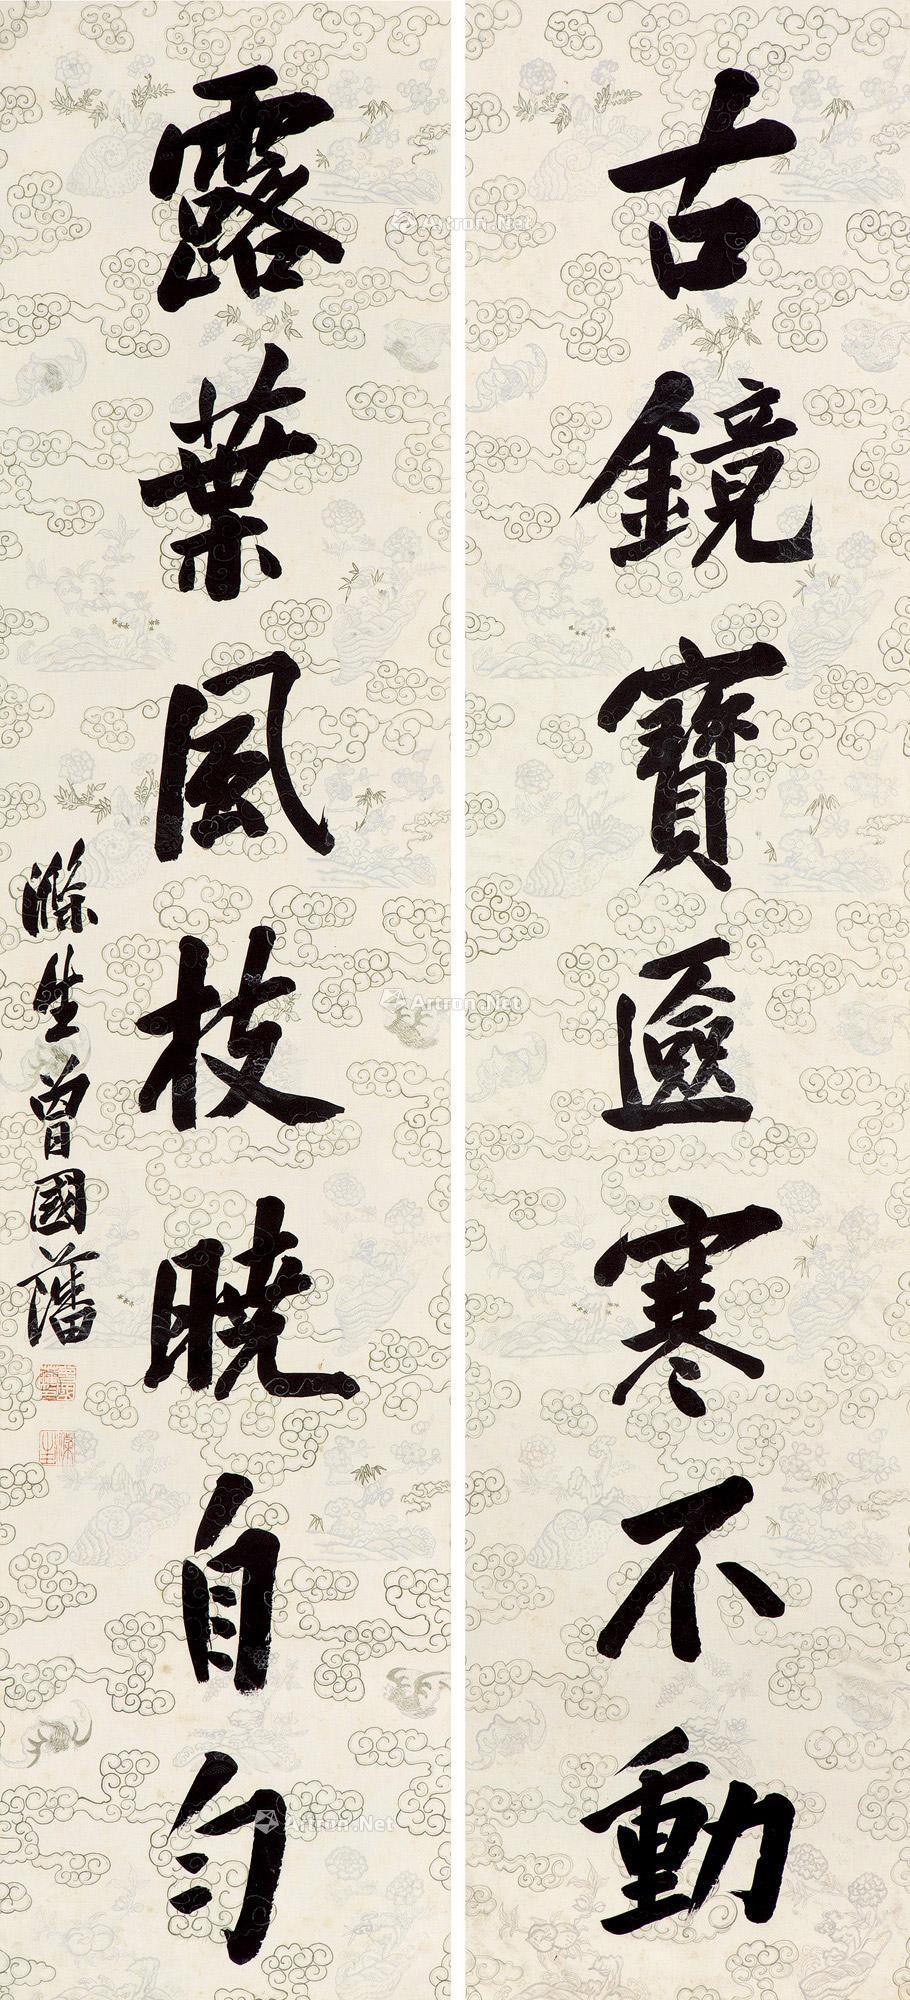 古鏡寶匳寒不動
露葉風枝曉自勻
滌生曾國藩
Artron.Net
Artron.Net
Artron.Net